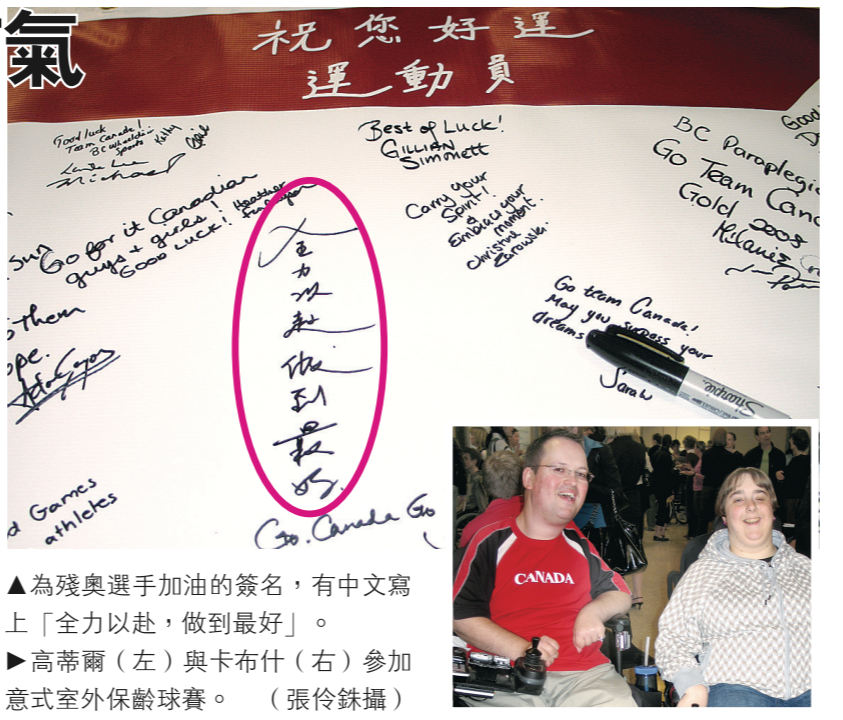 氣
祝您好運
運動員
Good luck
Team Canada!
BC Wheelchair
Sports
Kelly
Michael
Best of Luck!
GILLIAN
Simmett
BC Paraplegic
Go Team Can
Gold 2005
Milanie
Good
Go for it Canadian
guys + girls!
GOOD LUCK!
Heather
Sun
Carry your
Spirit!
&
Embrace your
moment.
Christine
全力以赴做到最好.
them
ope.
Go team Canada!
May you surpass your
dreams
Sarah
Sharpie
d Games
athletes
Go Canada Go
CANADA
▲為殘奧選手加油的簽名，有中文寫
上「全力以赴，做到最好」。
▶高蒂爾（左）與卡布什（右）參加
意式室外保齡球賽。　（張伶銖攝）